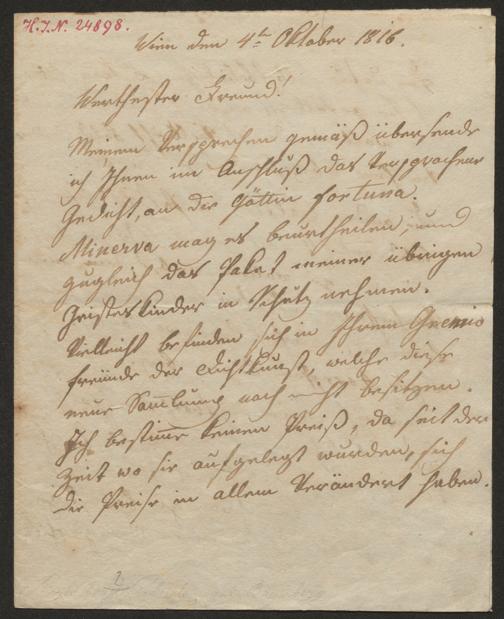 H.I.N. 24898.
Wien den 4t. Oktober 1816.
Werthester Freund!
Meinem Versprechen gemäß übersende
ich Ihnen im Anschluß das versprochene
Gedicht, an die Göttin Fortuna.
Minerva mag es beurtheilen, und
zugleich das Paket meiner übrigen
Geisteskinder in Schutz nehmen.
Vielleicht befinden sich in Ihrem Gremio
freunde der Dichtkunst, welche diese
neue Samlung noch nicht besitzen.
Ich bestime keinen Preiß, da seit der
Zeit wo sie aufgelegt wurden, sich
die Preise in allem Verändert haben.